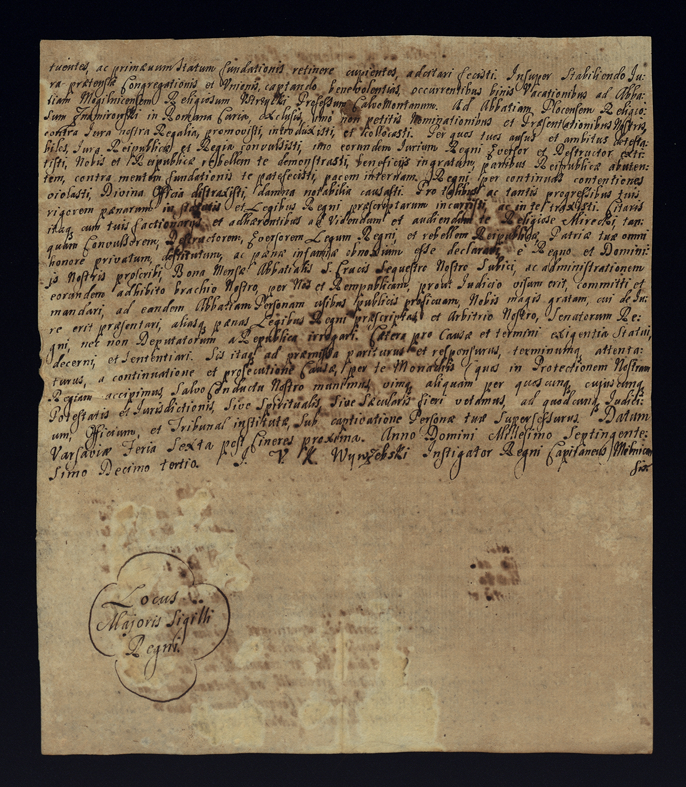 tuentes, ac primævum statum fundationis retinere cupientes, adcitari fecisti. Insuper Stabiliendo Ju-
ra prætensæ Congregationis et Unionis, captando benevolentiam, occurrentibus binis Vacationibus ad Abba-
tiam Mogilnicensem Religiosum Mirecki Professum CalvoMontanum. Ad Abbatiam Plocensem Religio-
sum Znamirowski in Romana Curia, exclusis, imo non petitis Nominationibus et Præsentationibus Nostris,
contra Jura nostra Regalia, promovisti, introduxisti, et collocasti. Per quos tuos ausus et ambitus detesta-
biles, Jura Reipublicæ et Regia convulsisti, imo eorundem Jurium Regni Eversor et Destructor exti-
tisti, Nobis et Reipublicæ rebellem te demonstrasti, beneficijs ingratum, panibus Reipublicæ abuten-
tem, contra mentem fundationis te patefecisti, pacem internam Regni per continuas contentiones
violasti, Divina Officia distraxisti, damna notabilia causasti. Pro talibus ac tantis progressibus tuis,
rigorem pænarum in statutis et Legibus Regni præscriptarum incurristi, ac in te traxisti. Citaris
itaq, cum tuis factionarijs et adhærentibus ad Videndum et audiendum te Religiose Mirecki, tan-
quam Convulsorem, Destructorem, Eversorem Legum Regni, et rebellem Reipublicæ, Patriæ tuæ omni
honore privatum, destitutum, ac pænæ infamiæ obnoxium esse declarari, è Regno et Domini-
js Nostris proscribi, Bona Mensæ Abbatialis S. Crucis Sequestro Nostro Subici, ac administrationem
eorundem adhibito brachio Nostro, per Nos et Rempublicam, prout Judicio visum erit, committi et
mandari, ad eandem Abbatiam Personam cusibus publicis proficuam, Nobis magis gratam, cui de Ju-
re erit præsentari, aliasq pænas Legibus Regni præscriptas et Arbitrio Nostro, Senatorum Re-
gni, nec non Deputatorum a Republica irrogari. Cætera pro Causæ et termini exigentia Statui,
decerni, et Sententiari. Sis itaq ad præmissa pariturus et responsurus, terminumq attenta-
turus, a continuatione et prosecutione Causæ, per te Mondatis, quos in Protectionem Nostram
Regiam accipimus, Salvo Conductu Nostro munimus, vimq aliquam per quoscunq, cujuscunq,
Potestatis et Jurisdictionis, sive Spiritualis, sive Sæcularis fieri vetamus, ad quodcunq Judici-
um, Officium, et Tribunal institutæ, sub captivatione Personæ tuæ Supersessurus. Datum
Varsaviæ Feria Sexta post Cineres proxima. Anno Domini Millesimo Septingente-
simo Decimo tertio. J. V. K. Wyrzebski Instigator Regni Capitaneus
Locus
Majoris Sigilli
Regni